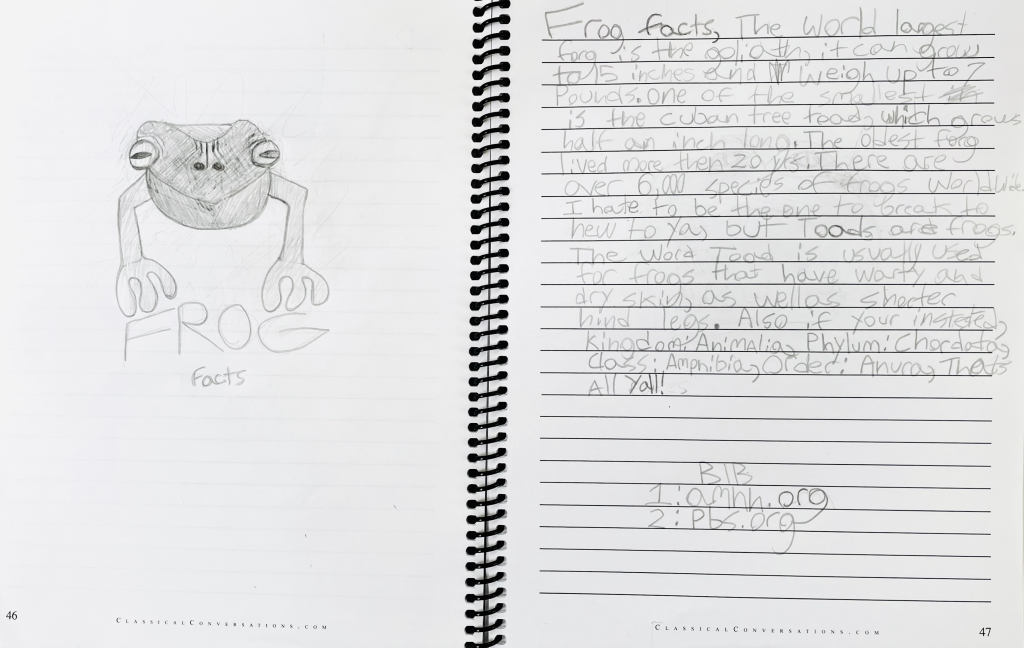 FROG
Facts
46
CLASSICALCONVERSATIONS.COM
Frog facts, The world largest
forg is the goliath, it can grow
to 15 inches and weigh up to 7
Pounds. One of the smallest
is the cuban tree toad, which grows
half an inch long. The oldest forg
lived more then 20 yrs. There are
over 6,000 species of frogs worldwide.
I hate to be the one to break to
new to ya, but Toads are frogs.
The word Toad is usually used
for frogs that have warty and
dry skin, as well as shorter
hind legs. Also if your insteted,
kingdom: Animalia, Phylum: Chordata,
Class: Amphibia, Order: Anura, Thats
All Yall!
BIB
1: amnh.org
2: Pbs.org
CLASSICALCONVERSATIONS.COM
47